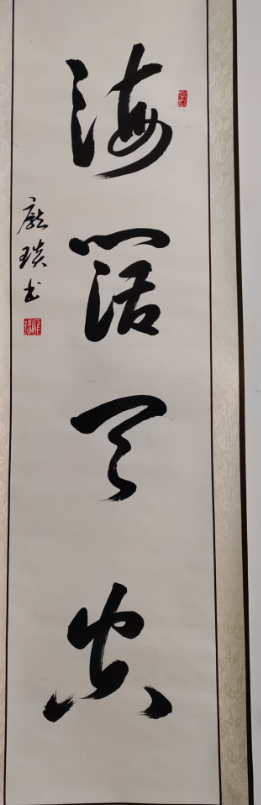 海阔天空
龐琰书